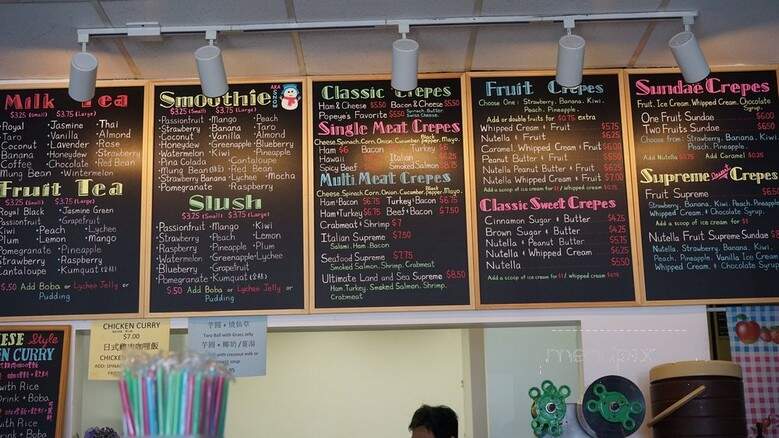 Milk Tea
$3.25 (Small) $3.75 (Large)
Royal •Jasmine •Thai
Taro •Vanilla •Almond
Coconut •Lavender •Rose
Banana •Honeydew •Strawberry
Coffee •Chocolate •Red Bean
Mung Bean •Winter
Fruit Tea
$3.25 (Small) $3.75 (Large)
Royal Black •Jasmine Green
Passionfruit •Grapefruit
Kiwi •Peach •Lemon
Plum •Lychee •Mango
Pomegranate •Pineapple
Strawberry •Raspberry
Cantaloupe •Kumquat
$.50 Add Boba or Lychee Jelly or
Pudding
Smoothie AKA SNOW
$3.25 (Small) $3.75 (Large)
•Passionfruit •Mango •Peach
•Strawberry •Papaya •Taro
•Coconut •Banana •Almond
•Honeydew •Vanilla •Blueberry
•Watermelon •Kiwi •Pineapple
•Pina Colada •Cantaloupe
•Mung Bean •Red Bean
•Strawberry Banana •Lychee •Mocha
•Pomegranate •Raspberry
Slush
$3.25 (Small) $3.75 (Large)
•Passionfruit •Mango •Kiwi
•Strawberry •Peach •Lemon
•Raspberry •Pineapple •Plum
•Watermelon •Green Apple •Lychee
•Blueberry •Grapefruit
•Pomegranate •Kumquat
$.50 Add Boba or Lychee Jelly or
Pudding
Classic Crepes
Ham & Cheese $5.50 Bacon & Cheese $5.50
Popeye's Favorite $5.50 Spinach
Swiss Cheese
Single Meat Crepes
Cheese, Spinach, Corn, Onion, Cucumber, Black Pepper, Mayo.
Ham $6 Bacon $6 Turkey $6
Hawaii Italian
Spicy Beef Smoked Salmon
Multi Meat Crepes
Cheese, Spinach, Corn, Onion, Cucumber, Black Pepper, Mayo.
Ham & Bacon $6.75 Turkey & Bacon $7
Ham & Turkey $6.75 Beef & Bacon $7.50
Crabmeat & Shrimp $7
Italian Supreme $7.50
Salami, Ham, Bacon
Seafood Supreme $7.75
Smoked Salmon, Shrimp, Crabmeat
Ultimate Land and Sea Supreme $8.50
Ham, Turkey, Smoked Salmon, Shrimp,
Crabmeat
Fruit Crepes
Choose One: Strawberry, Banana, Kiwi,
Peach, Pineapple.
Add or double fruits for $0.75 extra
Whipped Cream + Fruit $5.75
Nutella + Fruit $6.25
Caramel, Whipped Cream + Fruit $6.00
Peanut Butter + Fruit
Nutella + Peanut Butter + Fruit
Nutella + Whipped Cream + Fruit $7.00
Add a scoop of ice cream for $1 / whipped cream
Classic Sweet Crepes
Cinnamon Sugar + Butter $4.25
Brown Sugar + Butter $4.25
Nutella + Peanut Butter $5.75
Nutella + Whipped Cream $6.25
Nutella $5.50
Add a scoop of ice cream for $1 / whipped cream
Sundae Crepes
Fruit, Ice Cream, Whipped Cream, Chocolate
Syrup.
One Fruit Sundae $6.00
Two Fruits Sundae $6.50
Choose from: Strawberry, Banana, Kiwi,
Peach, Pineapple.
Add Nutella Add Caramel
Supreme Crepes
Fruit Supreme
Strawberry, Banana, Kiwi, Peach, Pineapple,
Whipped Cream, & Chocolate Syrup.
Add a scoop of ice cream for $1
Nutella Fruit Supreme Sundae
Nutella, Strawberry, Banana, Kiwi,
Peach, Pineapple, Vanilla Ice Cream,
Whipped Cream, & Chocolate Syrup
CHICKEN CURRY
$7.00
CHICKEN
Taro Ball with Grass Jelly
with coconut milk or
soup
Style
CURRY
with Rice
Drink + Boba
with Rice
Drink + Boba
menupix